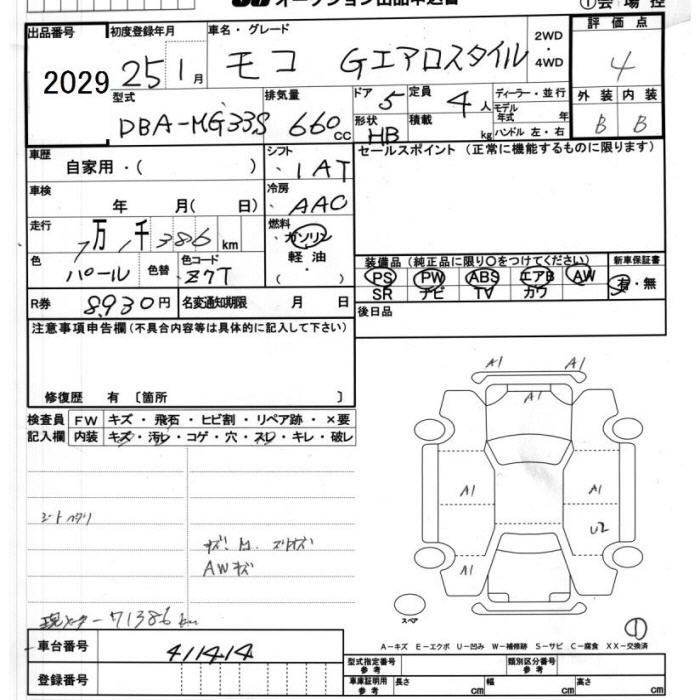 オークション出品申込書
①会場控
出品番号 2029
初度登録年月 25 1月
車名・グレード モコ Gエアロスタイル
2WD・4WD
評価点 4
外装 B 内装 B
型式 DBA-MG33S
排気量 660cc
ドア 5 定員 4人
形状 HB 積載 kg
ディーラー・並行
モデル年式 年
ハンドル 左・右
車歴 自家用・( )
シフト ・IAT
セールスポイント(正常に機能するものに限ります)
車検 年 月( 日)
冷房 ・AAC
走行 7万1千386km
燃料 ・ガソリン 軽油 ・( )
色 パール 色替 色コード ・Z7T
装備品(純正品に限り○をつけてください) 新車保証書
PS PW ABS エアB AW 有・無
SR ナビ TV カワ
R券 8,930円 名変通知期限 月 日
後日品
注意事項申告欄(不具合内容等は具体的に記入して下さい)
修復歴 有〔箇所 〕
検査員記入欄
FW キズ・飛石・ヒビ割・リペア跡・×要
内装 キズ・汚レ・コゲ・穴・スレ・キレ・破レ
A1 A1
A1
A1 A1
U2
A1
AWキズ
現メーター71386km
スペア
①
A-キズ E-エクボ U-凹み W-補修跡 S-サビ C-腐食 XX-交換済
車台番号 411414
登録番号
型式指定番号 参考 類別区分番号 参考
車庫証明用 参考 長さ cm 幅 cm 高さ cm